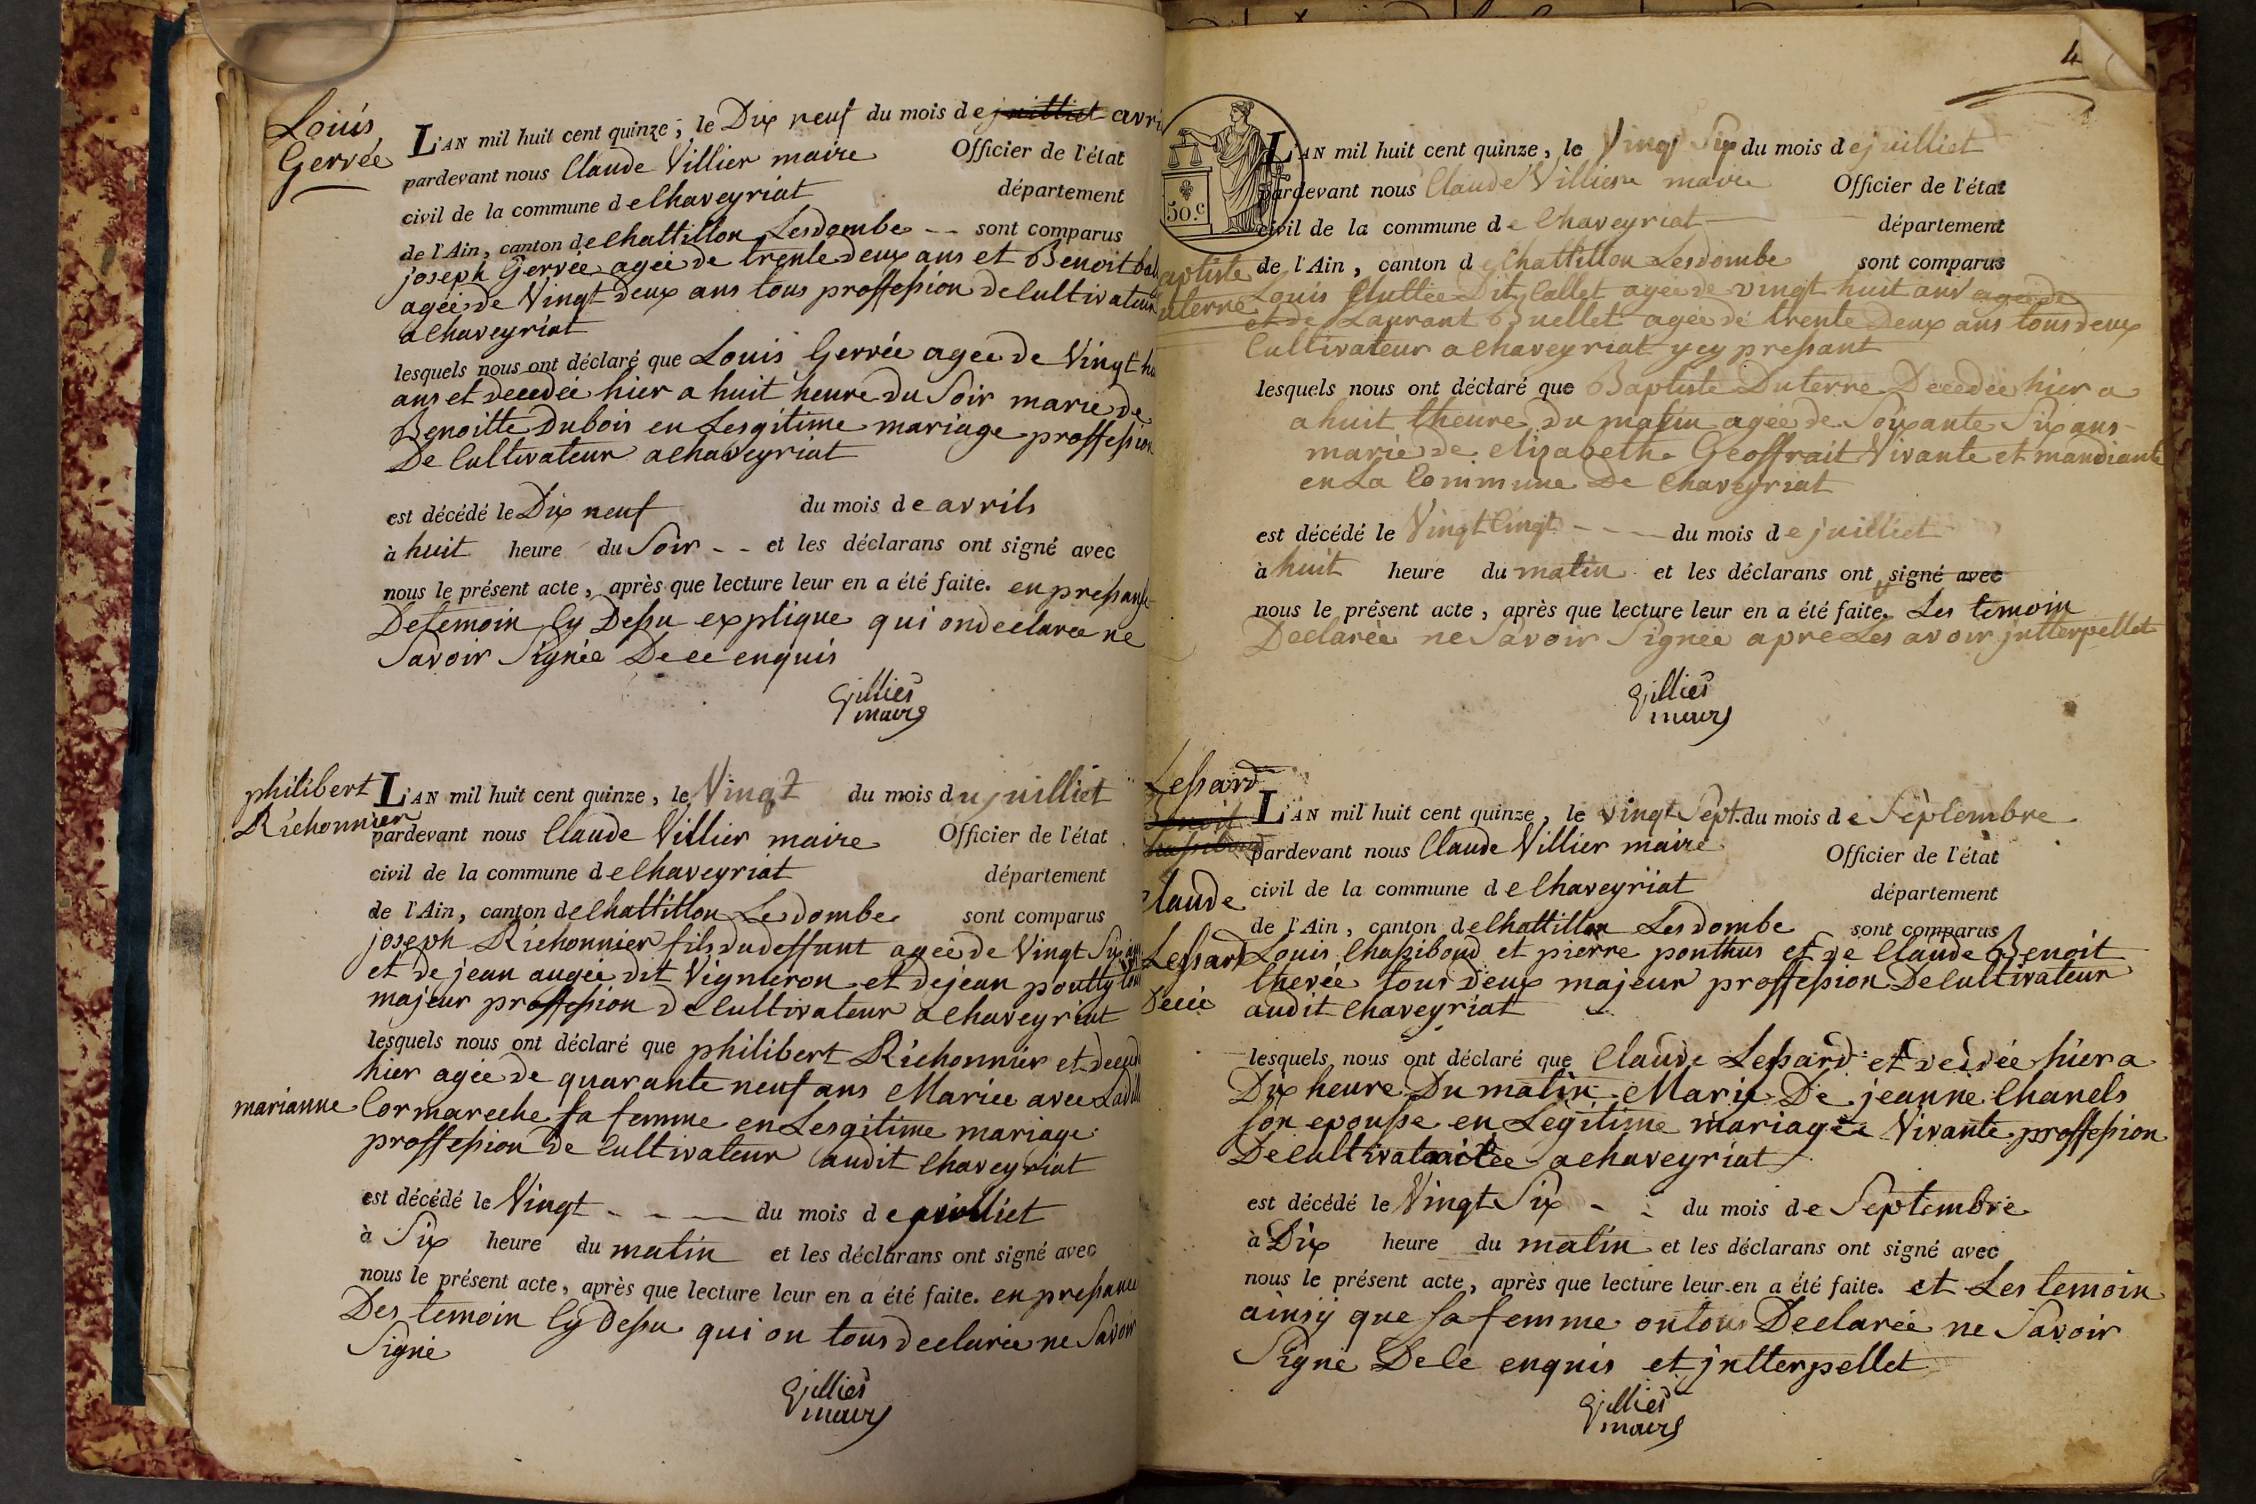 Louis
Gervée
L'AN mil huit cent quinze, le Dix neuf du mois de juilliet avri
pardevant nous Claude Villier maire Officier de l'état
civil de la commune de Chaveyriat département
de l'Ain, canton de Chattillon Lesdombe -- sont comparus
joseph Gervée agée de trente deux ans et Benoit
agée de Vingt deux ans tous proffession de Cultivateur
a Chaveyriat
lesquels nous ont déclaré que Louis Gervée agée de Vingt
ans et decedée hier a huit heure du Soir marie de
Benoitte Dubois en Lesgitime mariage proffession
De Cultivateur a Chaveyriat
est décédé le Dix neuf du mois de avrils
à huit heure du Soir -- et les déclarans ont signé avec
nous le présent acte, après que lecture leur en a été faite. en pressanse
Detemoin Cy Dessu explique qui on declaree ne
Savoir Signée De ce enquis
Villier
maire
philibert
Richonnier
L'AN mil huit cent quinze, le Vingt du mois du juilliet
pardevant nous Claude Villier maire Officier de l'état
civil de la commune de Chaveyriat département
de l'Ain, canton de Chattillon Lesdombe sont comparus
joseph Richonnier fils du deffunt agée de Vingt Six ans
et de jean augée dit Vigneron et de jean poutty tous
majeur proffession de Cultivateur a Chaveyriat
lesquels nous ont déclaré que philibert Richonnier et deced
hier agée de quarante neuf ans Mariee avec Laditte
marianne Cormareche sa femme en Lesgitime mariage
proffession de Cultivateur audit Chaveyriat
est décédé le Vingt du mois de juilliet
à Six heure du matin et les déclarans ont signé avec
nous le présent acte, après que lecture leur en a été faite. en pressance
Des temoin Cy Dessu qui on tous declarée ne Savoir
Signé
Villier
maire
4
50.c
aptiste
uterre
L'AN mil huit cent quinze, le Vingt Six du mois de juilliet
pardevant nous Claude Villier maire Officier de l'état
civil de la commune de Chaveyriat département
de l'Ain, canton de Chattillon Lesdombe sont comparus
Louis Cluttée Dit Collet agee de vingt huit ans agee de
et de Laurant Buellet agée de trente Deux ans tous deux
Cultivateur a Chaveyriat y cy pressant
lesquels nous ont déclaré que Baptiste Duterre Decedée hier a
a huit Cheure Du matin agée de Soixante Six ans
marié de elizabeth Geoffrait Vivante et mandiante
en La Commune De Chaveyriat
est décédé le Vingt Cinqt --- du mois de juilliet
à huit heure du matin et les déclarans ont signé avec
nous le présent acte, après que lecture leur en a été faite. Les temoin
Declarée ne Savoir Signee apre Les avoir jntterpellet
Villier
maire
Lessard
Benoit
Claude
Lessard
Décé
L'AN mil huit cent quinze, le vingt Sept du mois de Séptembre
pardevant nous Claude Villier maire Officier de l'état
civil de la commune de Chaveyriat département
de l'Ain, canton de Chattillon Lesdombe sont comparus
Louis Chassiboud et pierre ponthus et de Claude Benoit
Chevée tous Deux majeur proffession De Cultivateur
audit Chaveyriat
lesquels nous ont déclaré que Claude Lessard et dcidée hier a
Dix heure Du matin Marie De jeanne Chanels
son epousse en Légitime mariagée Vivante proffession
De Cultivatrice a Chaveyriat
est décédé le Vingt Six - - du mois de Septembre
à Dix heure du matin et les déclarans ont signé avec
nous le présent acte, après que lecture leur en a été faite. et Les temoin
ainsy que sa femme on tous Declarée ne Savoir
Signé De Ce enquis et jntterpellet
Villier
maire